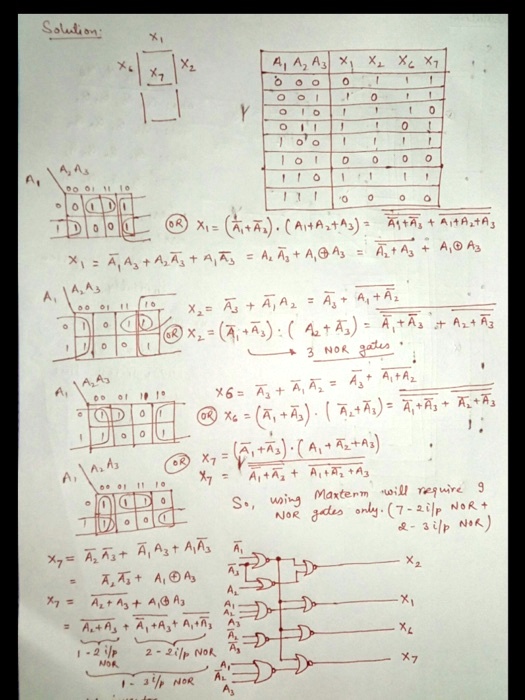 Solution:
X₁
X₆ X₇ X₂
A₁ A₂ A₃ X₁ X₂ X₆ X₇
0 0 0 0 1 1 1
0 0 1 1 0 1 1
0 1 0 1 1 1 0
0 1 1 1 1 0 1
1 0 0 1 1 1 1
1 0 1 0 0 0 0
1 1 0 1 1 1 1
1 1 1 0 0 0 0
A₁ A₂A₃
00 01 11 10
0 0 1 1 1
1 1 0 0 1
OR X₁ = (A̅₁+A̅₃) · (A₁+A₂+A₃) =
X₁ = A̅₁A₃ + A₂A̅₃ + A₁A̅₃ = A₂A̅₃ + A₁⊕A₃ = A̅₂+A₃ + A₁⊕A₃
A₁ A₂A₃
00 01 11 10
0 1 0 1 1
1 1 0 0 1
X₂ = A̅₃ + A̅₁A₂ = A̅₃ + A₁+A̅₂
OR X₂ = (A̅₁+A̅₃) · (A₂+A̅₃) = A̅₁+A̅₃ + A₂+A̅₃
3 NOR gates
A₁ A₂A₃
00 01 11 10
0 1 1 0 1
1 1 0 0 1
X6 = A̅₃ + A̅₁A̅₂ = A̅₃ + A₁+A₂
OR X₆ = (A̅₁+A̅₃) · (A̅₂+A̅₃) = A̅₁+A̅₃ + A̅₂+A̅₃
A₁ A₂A₃
00 01 11 10
0 1 1 1 0
1 1 0 0 1
OR X₇ = (A̅₁+A̅₃) · (A₁+A̅₂+A₃)
X₇ = A̅₁+A̅₃ + A₁+A̅₂+A₃
So, using Maxterm will require 9
NOR gates only. (7-2i/p NOR +
2-3i/p NOR)
X₇ = A̅₂A̅₃ + A̅₁A₃ + A₁A̅₃
= A̅₂A̅₃ + A₁⊕A₃
X₇ = A₂+A₃ + A₁⊕A₃
= A₂+A₃ + A̅₁+A₃ + A₁+A̅₃
1-2i/p NOR 2-2i/p NOR
1-3i/p NOR
A̅₁
A̅₃
A₂
X₂
A₁
A₂
A₃
X₁
A̅₂
A̅₃
X₆
A₁
A̅₂
A₃
X₇